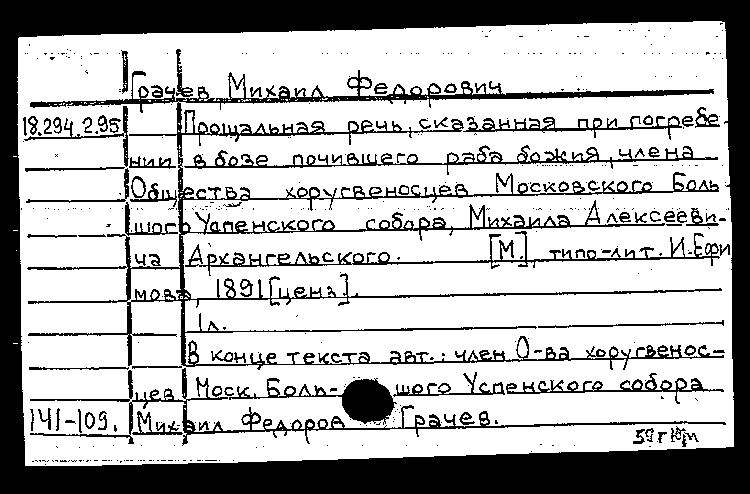 Грачев, Михаил Федорович
18.294.2.95 Прощальная речь, сказанная при погребе-
нии в бозе почившего раба божия, члена
Общества хоругвеносцев Московского Боль
шого Успенского собора, Михаила Алексееви-
ча Архангельского. [М.], типо-лит. И.Ефи
мова, 1891 [ценз].
1л.
В конце текста авт.: член О-ва хоругвенос-
цев Моск. Боль- шого Успенского собора
141-109. Михаил Федоров Грачев.